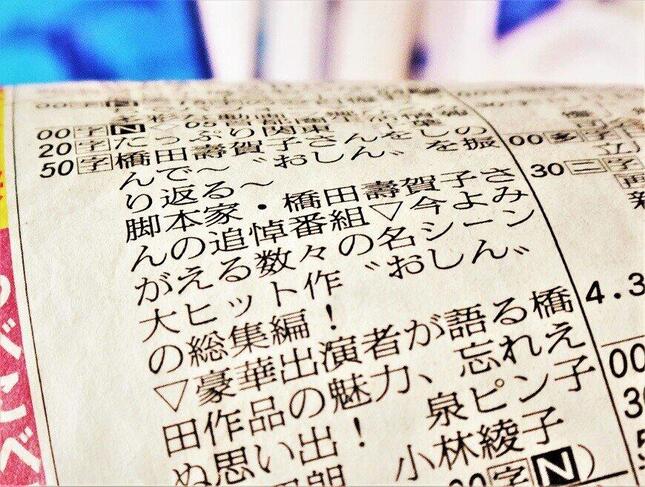 00字N
20字たっぷり関東
50字橋田壽賀子さんをしの
んで～〝おしん〟を振
り返る～
脚本家・橋田壽賀子さ
んの追悼番組▽今よみ
がえる数々の名シーン
大ヒット作〝おしん〟
の総集編！
▽豪華出演者が語る橋
田作品の魅力、忘れえ
ぬ思い出！　泉ピン子
小林綾子
00字N）
00多
30二字
再
4.3
00
30